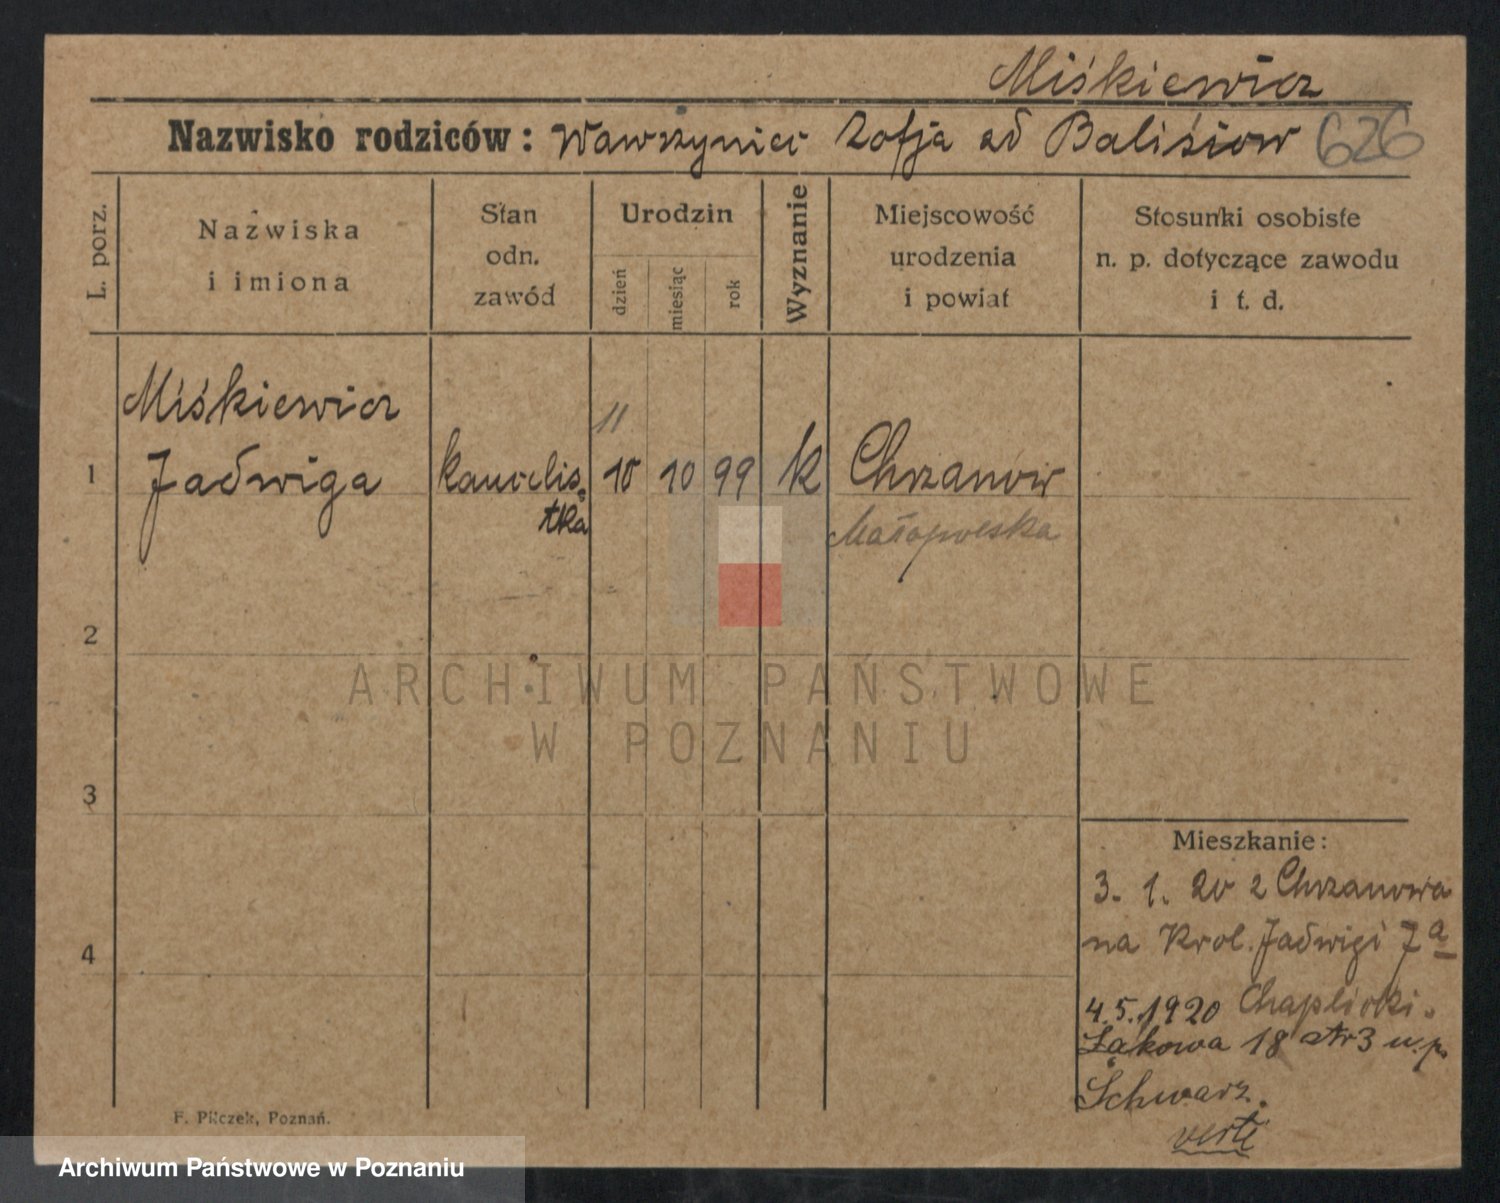 Miśkiewicz
Nazwisko rodziców: Wawrzyniec Zofja zd Balisiow 626
L. porz.
Nazwiska
i imiona
Stan
odn.
zawód
Urodzin
dzień
miesiąc
rok
Wyznanie
Miejscowość
urodzenia
i powiat
Stosunki osobiste
n. p. dotyczące zawodu
i t. d.
Miśkiewicz
11
1 Jadwiga kancelis- 10 10 99 k Chrzanów
tka
Małopolska
2
ARCHIWUM PAŃSTWOWE
W POZNANIU
3
Mieszkanie:
3. 1. 20 z Chrzanowa
na Krol. Jadwigi 7a
4
4.5.1920 Chaplicki.
Łąkowa 18 Nr 3 u. p.
Schwarz.
verte
F. Pilczek, Poznań.
Archiwum Państwowe w Poznaniu